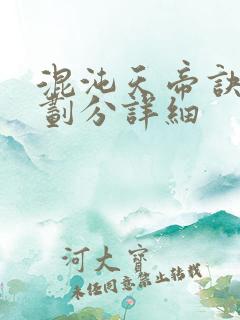 混沌天帝訣
劃分詳細
河大寶
未經同意禁止轉載